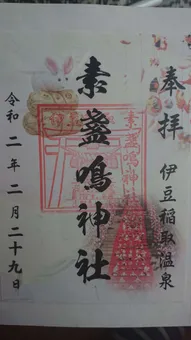 奉拝
伊豆稲取温泉
素盞鳴神社
素盞鳴神社
令和二年二月二十九日